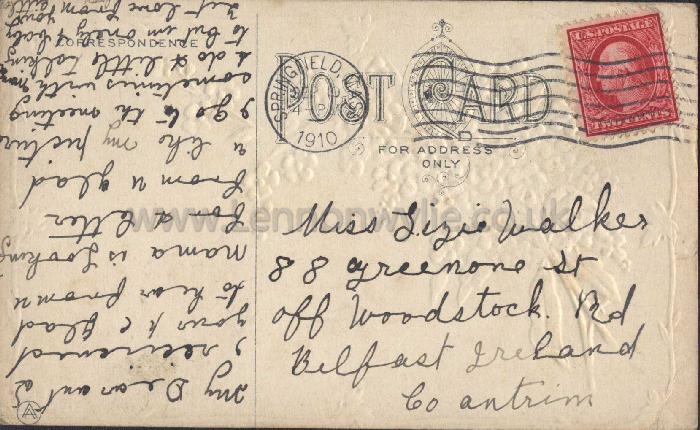 CORRESPONDENCE
POST CARD
FOR ADDRESS
ONLY
SPRINGFIELD, MASS.
4 P
1910
U.S. POSTAGE
TWO CENTS
Miss Lizie Walker
88 greenone St
off Woodstock. Rd
Belfast Ireland
Co antrim
My Deiar ant
I reciened
your Pc glad
to hear from u
mama is Looking
for a letter
from u glad
u like my picture
I go to th meeting
sometimes with
& do a little talking
to but im onely a baby
love from your
www.Lennonwylie.co.uk